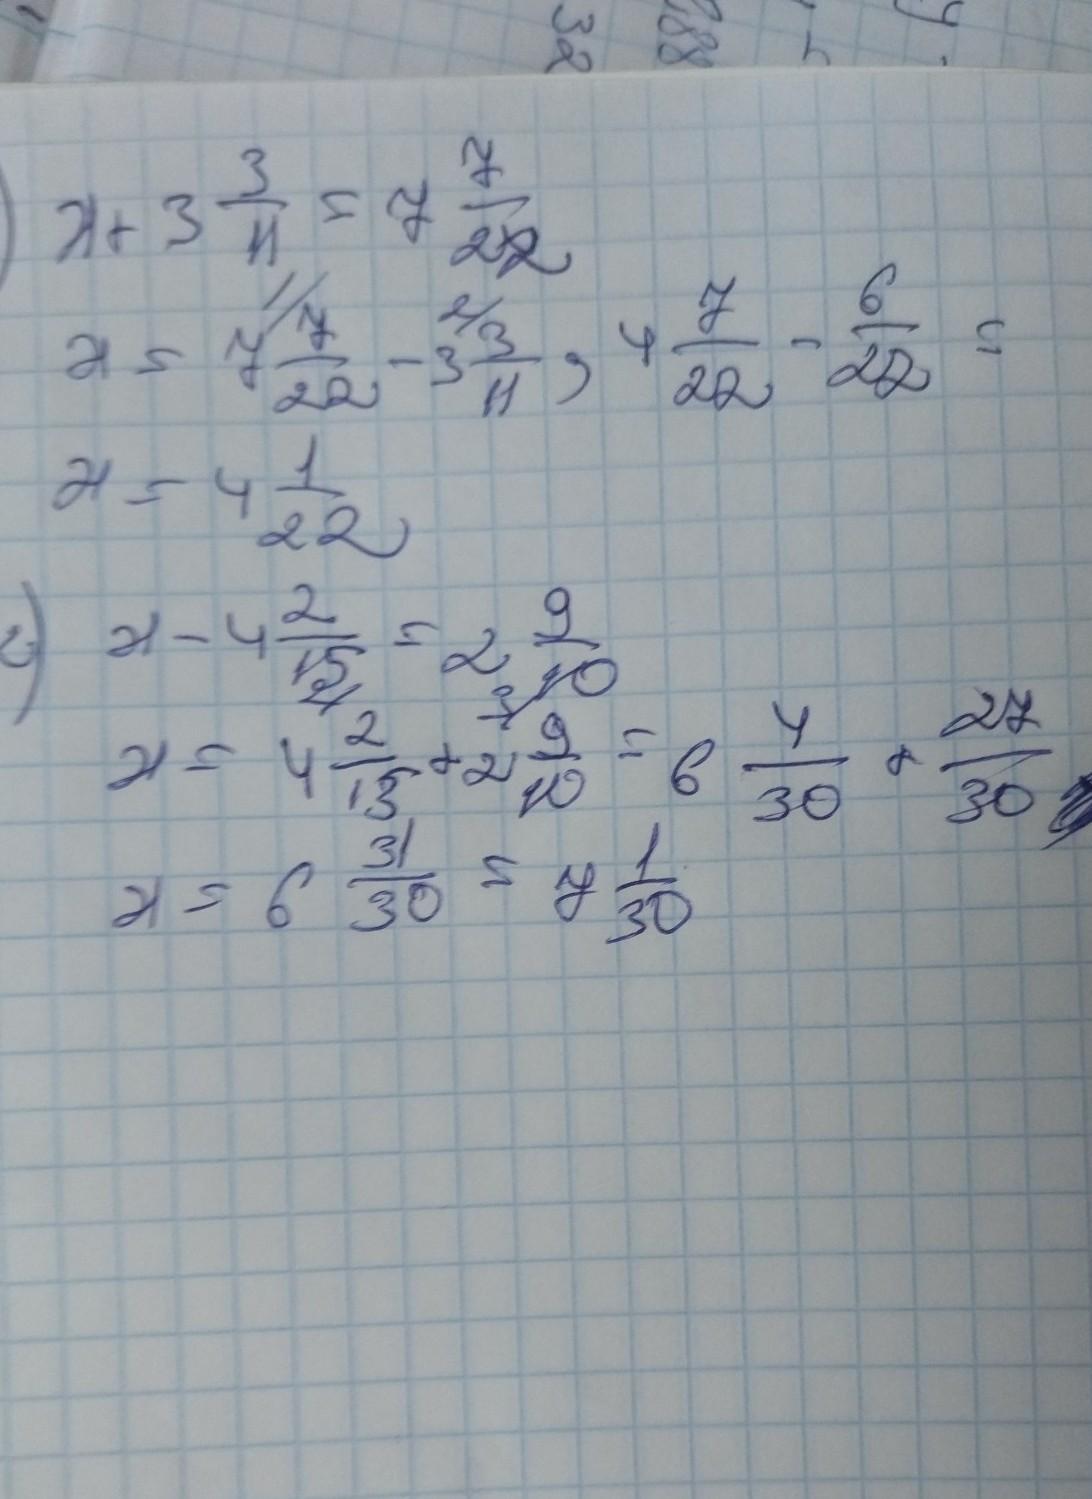 32 88 у.
) x + 3 3/11 = 7 7/22
x = 7 7/22 - 3 3/11 ; 4 7/22 - 6/22 =
x = 4 1/22
) x - 4 2/15 = 2 9/10
x = 4 2/15 + 2 9/10 = 6 4/30 + 27/30
x = 6 31/30 = 7 1/30